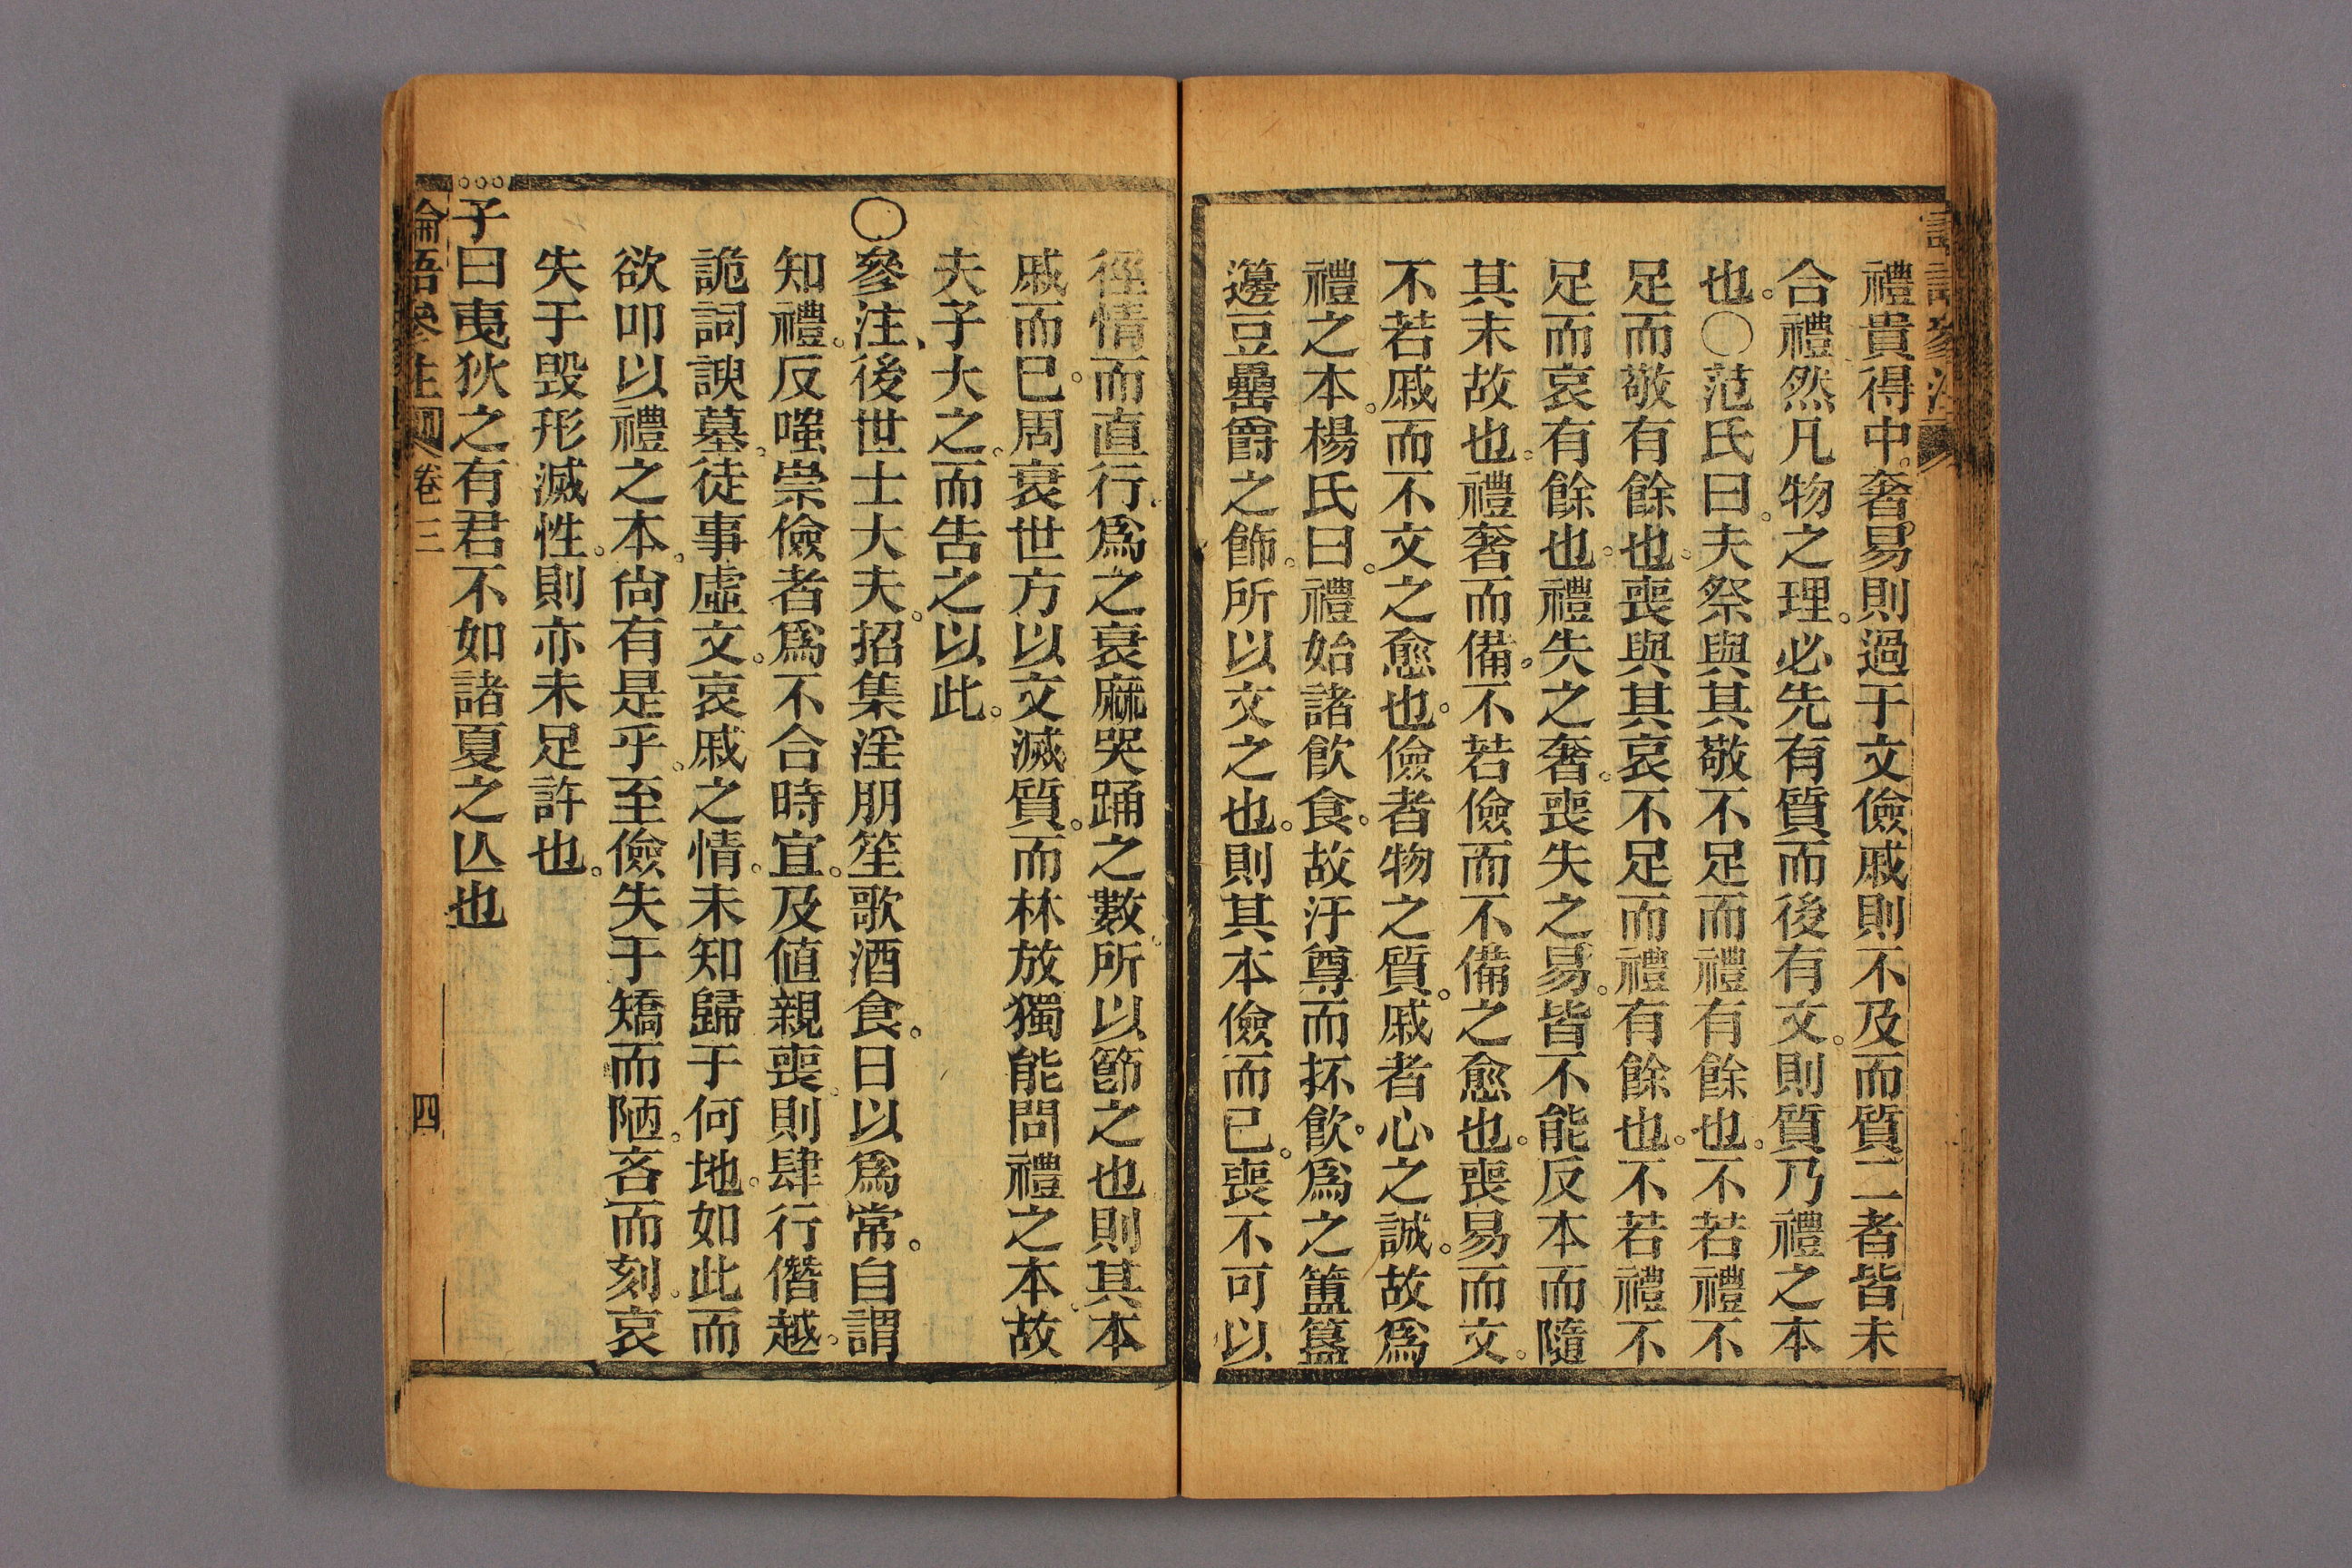 禮貴得中。奢易則過于文儉戚則不及而質二者皆未
合禮然凡物之理。必先有質而後有文。則質乃禮之本
也。○范氏曰。夫祭與其敬不足而禮有餘也。不若禮不
足而敬有餘也。喪與其哀不足而禮有餘也。不若禮不
足而哀有餘也。禮失之奢。喪失之易。皆不能反本而隨
其末故也。禮奢而備。不若儉而不備之愈也。喪易而文。
不若戚而不文之愈也。儉者物之質。戚者心之誠。故爲
禮之本。楊氏曰。禮始諸飲食。故汙尊而抔飲。爲之簠簋
籩豆罍爵之飾。所以文之也。則其本儉而已。喪不可以
徑情而直行。爲之衰麻哭踊之數。所以節之也則其本
戚而已。周衰世方以文滅質。而林放獨能問禮之本。故
夫子大之。而告之以此。
○參注、後世士大夫。招集淫朋笙歌酒食。日以爲常。自謂
知禮。反嗤崇儉者爲不合時宜。及値親喪。則肆行僭越。
詭詞諛墓。徒事虛文。哀戚之情。未知歸于何地。如此而
欲叩以禮之本。尙有是乎。至儉失于矯而陋。吝而刻。哀
失于毀形滅性。則亦未足許也。
子曰夷狄之有君不如諸夏之亾也
論語參注 卷三 四